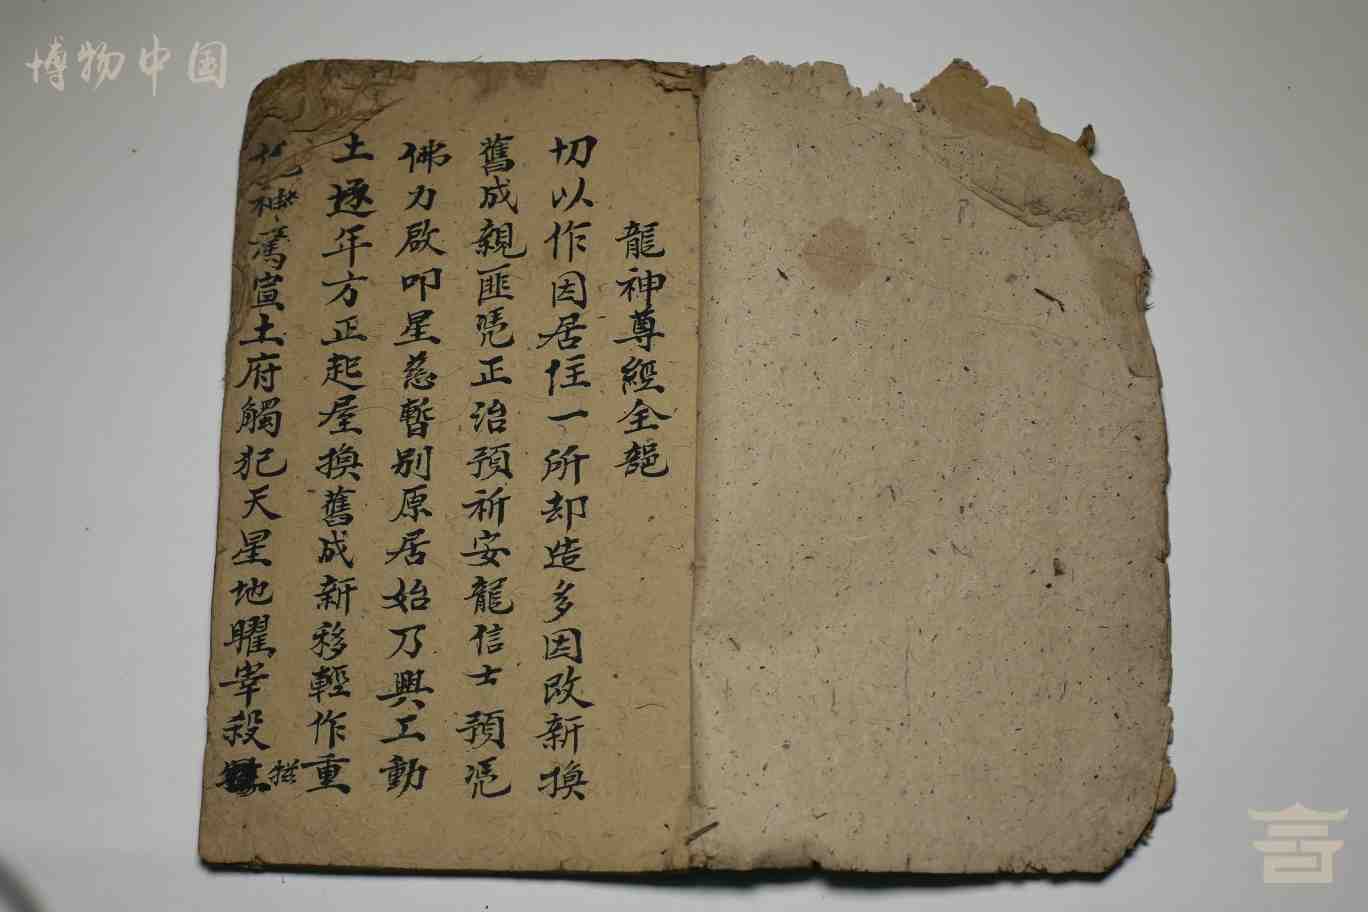 博物中国
龍神尊經全部
切以作因居住一所却造多因改新換
舊成親匪凭正治預祈安龍信士預凭
佛力啟叩星慈暫別原居始乃興工動
土逐年方正起屋換舊成新移輕作重
神 宣土府觸犯天星地曜宰殺